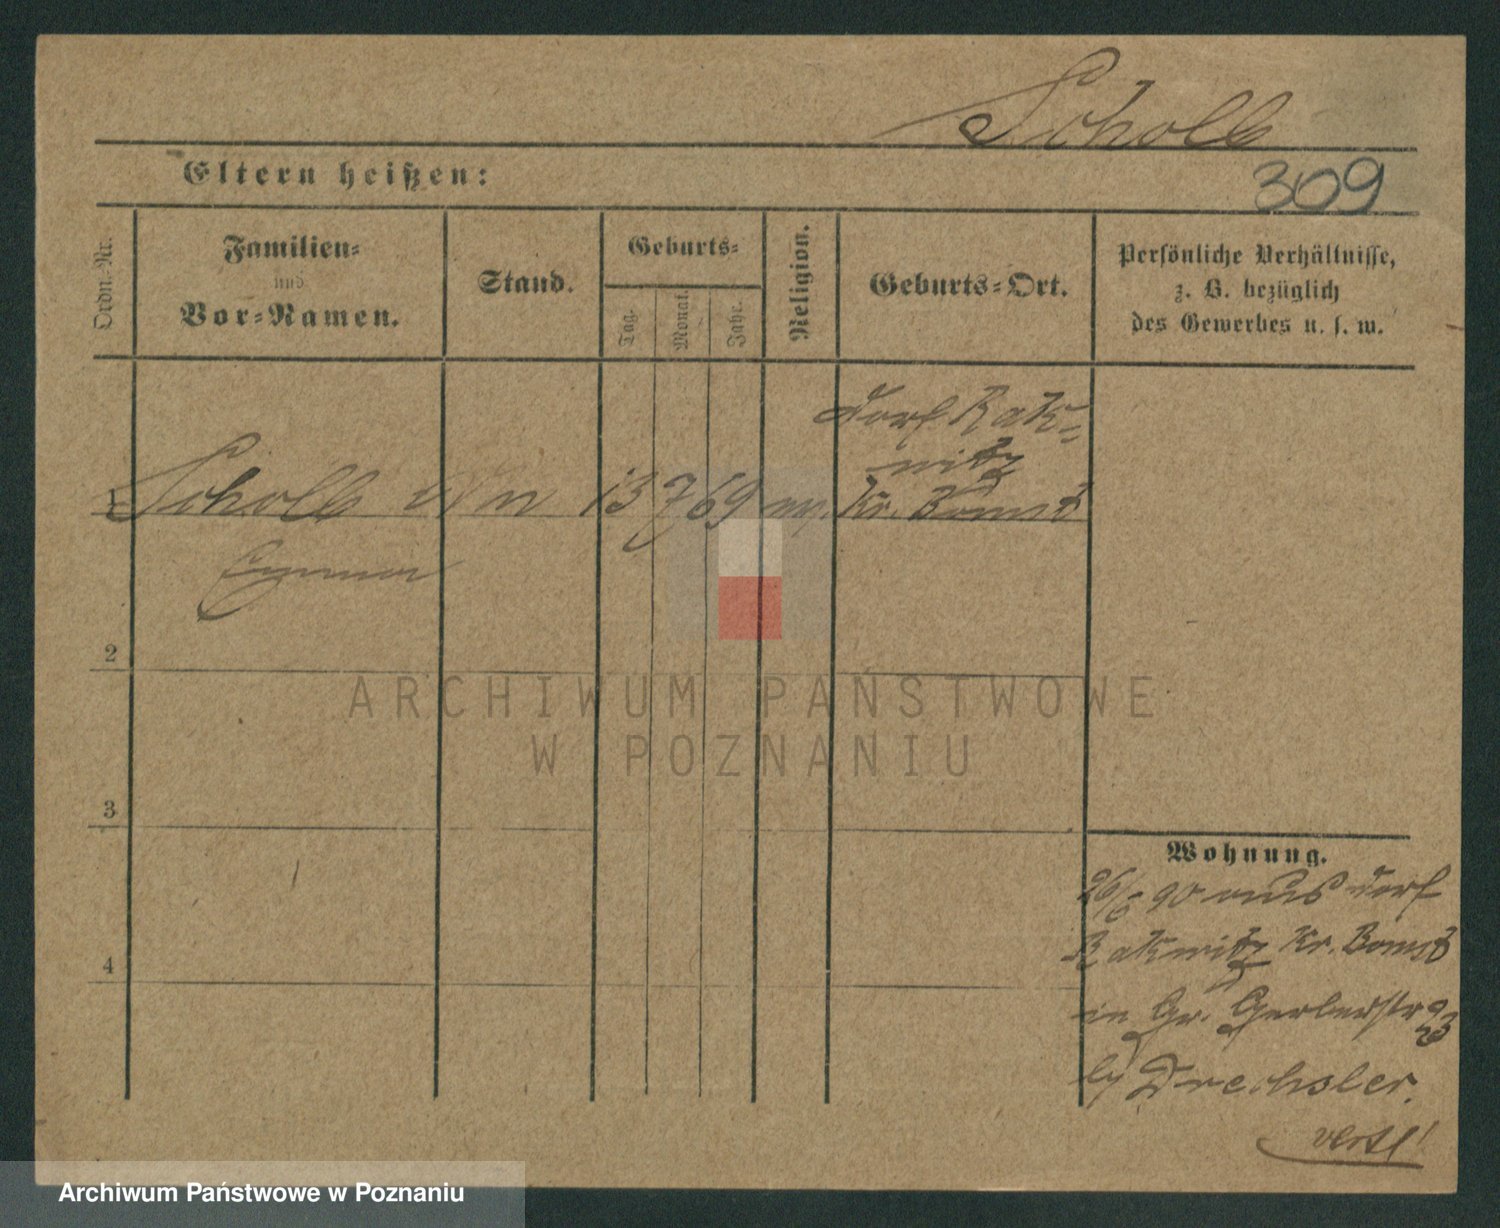 Scholl
Eltern heißen:
309
Ordn.-Nr.
Familien-
und
Vor-Namen.
Stand.
Geburts-
Tag.
Monat.
Jahr.
Religion.
Geburts-Ort.
Persönliche Verhältnisse,
z. B. bezüglich
des Gewerbes u. s. w.
dorf Rak-
witz
1 Scholl 13 7 69 Kr. Bomst
2
3
4
Wohnung.
90 aus dorf
Rakwitz Kr. Bomst
in Gr. Gerberstr
by Drechsler.
ARCHIWUM PAŃSTWOWE
W POZNANIU
Archiwum Państwowe w Poznaniu